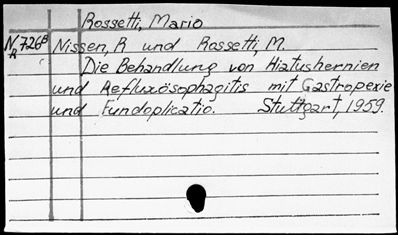 Rossetti, Mario
N 726B Nissen, R und Rossetti, M.
R Die Behandlung von Hiatushernien
und Refluxösophagitis mit Gastropexie
und Fundoplicatio. Stuttgart, 1959.